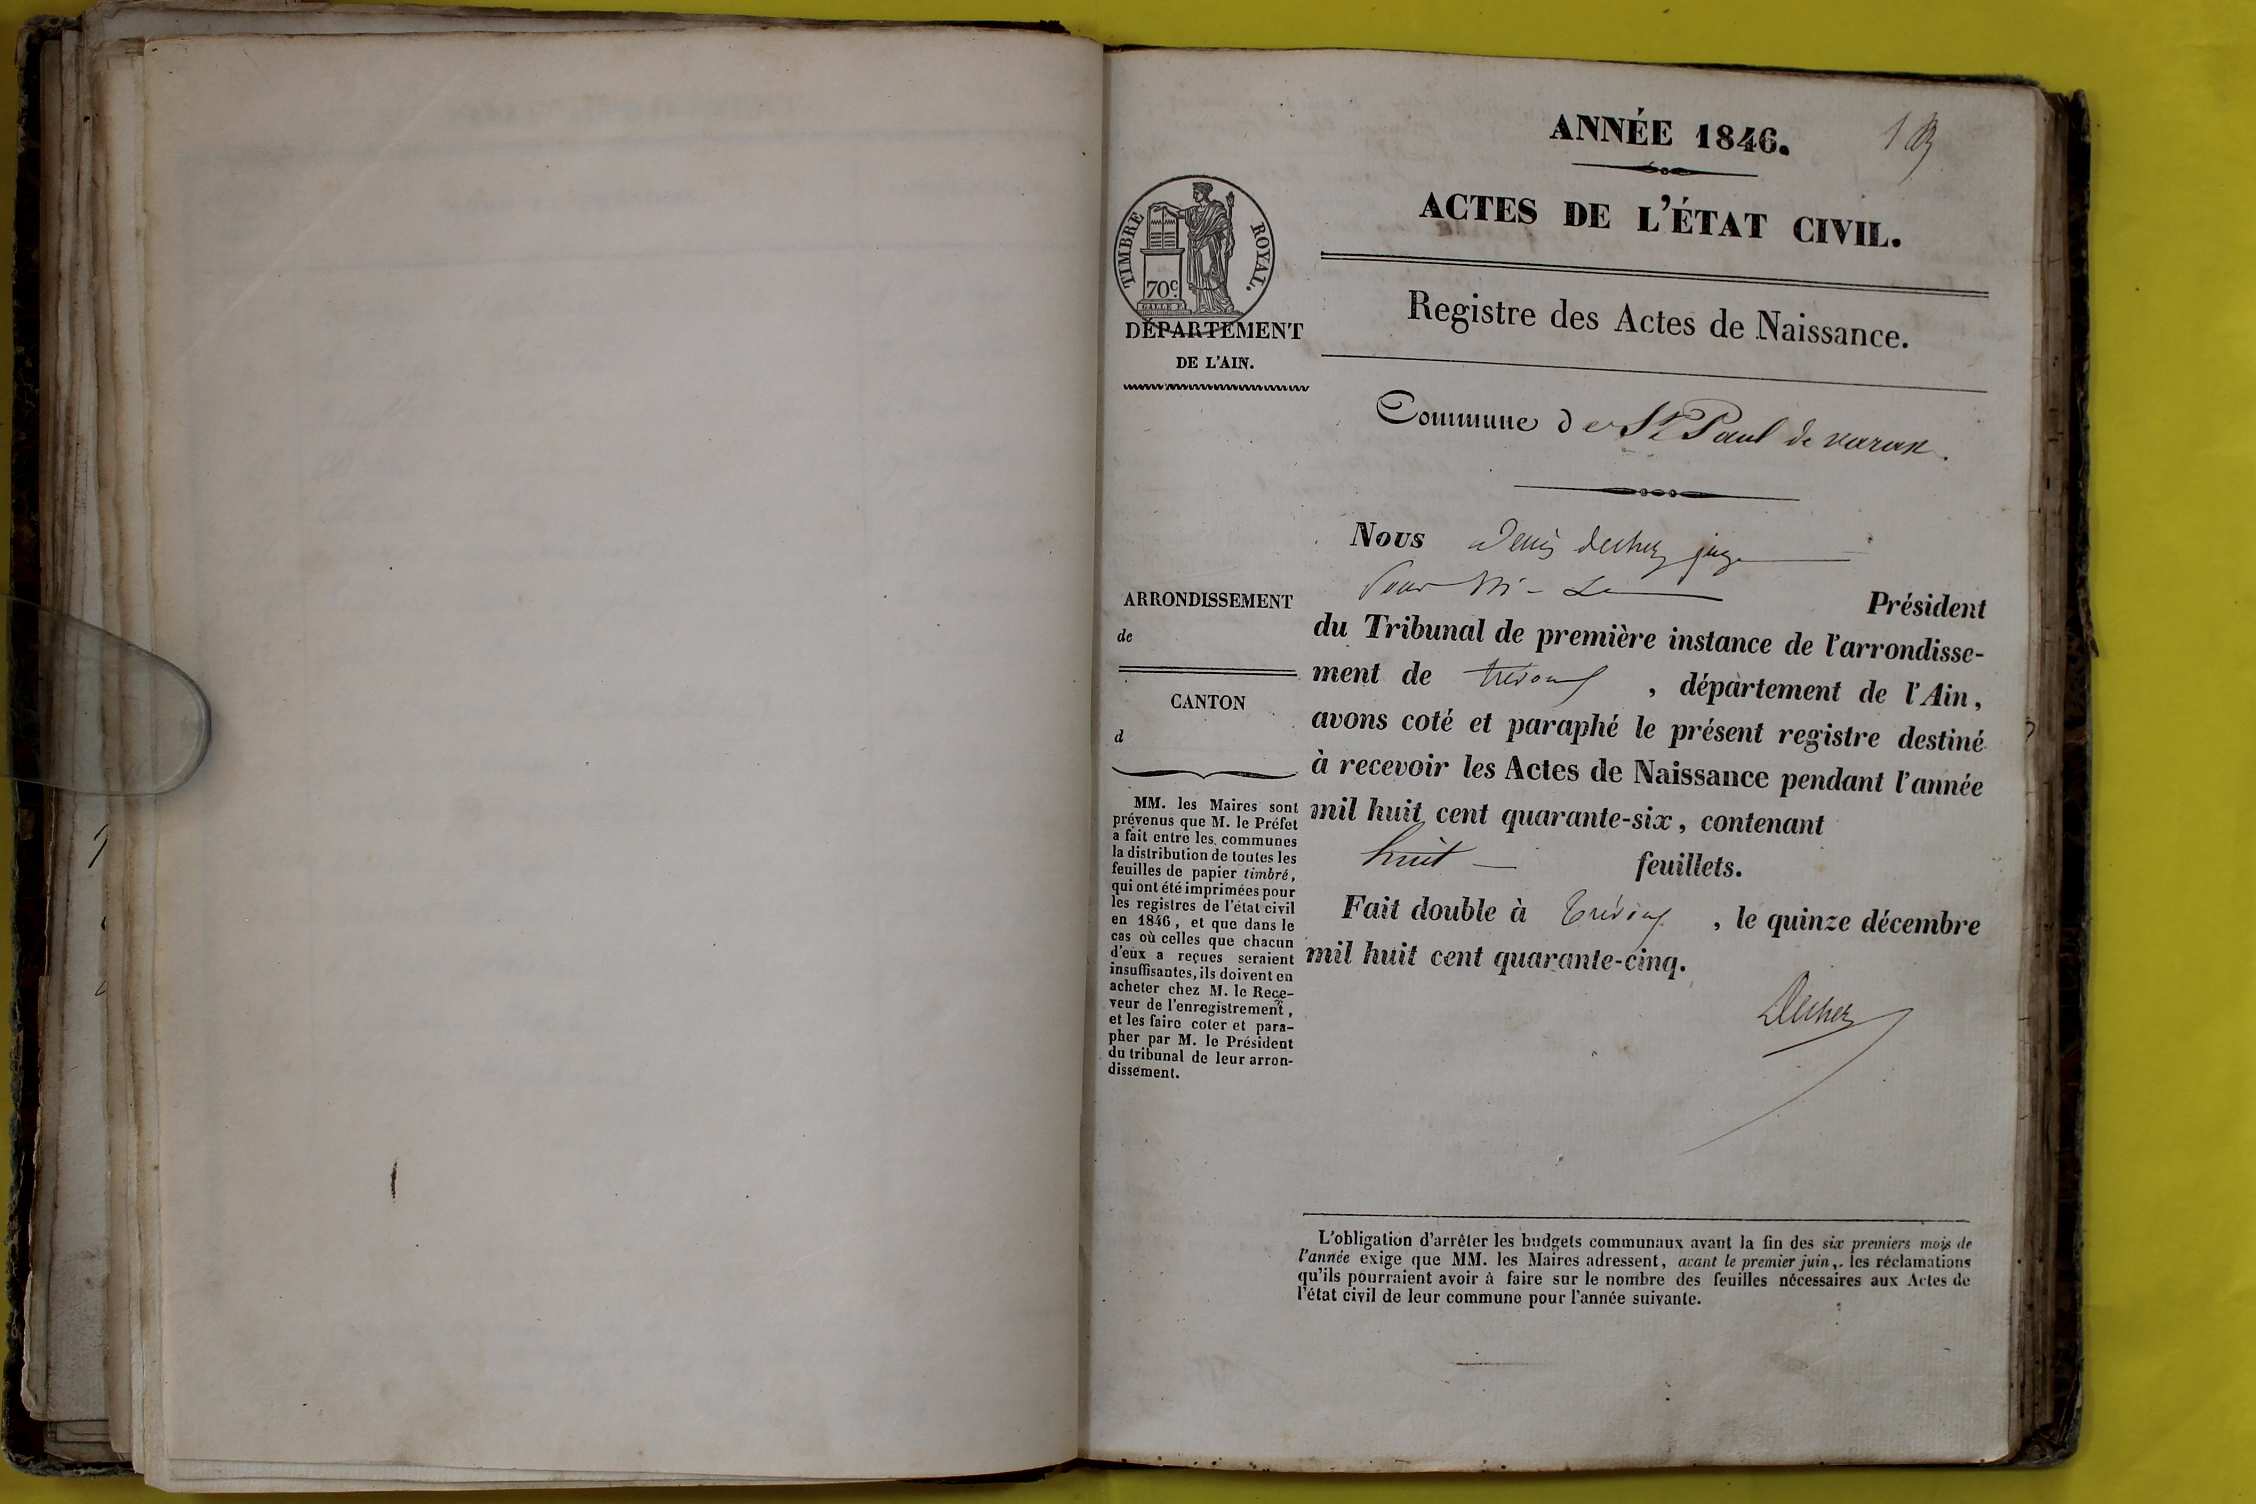 ANNÉE 1846.
1
ACTES DE L'ÉTAT CIVIL.
TIMBRE ROYAL.
70c
Registre des Actes de Naissance.
DÉPARTEMENT
DE L'AIN.
Commune de St Paul de varax.
Nous Denis decher juge
Pour Mr Le Président
ARRONDISSEMENT
de
du Tribunal de première instance de l'arrondisse-
ment de trévoux, département de l'Ain,
CANTON
d
avons coté et paraphé le présent registre destiné
à recevoir les Actes de Naissance pendant l'année
mil huit cent quarante-six, contenant
huit feuillets.
Fait double à Trévoux, le quinze décembre
mil huit cent quarante-cinq.
Decher
MM. les Maires sont
prévenus que M. le Préfet
a fait entre les communes
la distribution de toutes les
feuilles de papier timbré,
qui ont été imprimées pour
les registres de l'état civil
en 1846, et que dans le
cas où celles que chacun
d'eux a reçues seraient
insuffisantes, ils doivent en
acheter chez M. le Rece-
veur de l'enregistrement,
et les faire coter et para-
pher par M. le Président
du tribunal de leur arron-
dissement.
L'obligation d'arrêter les budgets communaux avant la fin des six premiers mois de
l'année exige que MM. les Maires adressent, avant le premier juin, les réclamations
qu'ils pourraient avoir à faire sur le nombre des feuilles nécessaires aux Actes de
l'état civil de leur commune pour l'année suivante.